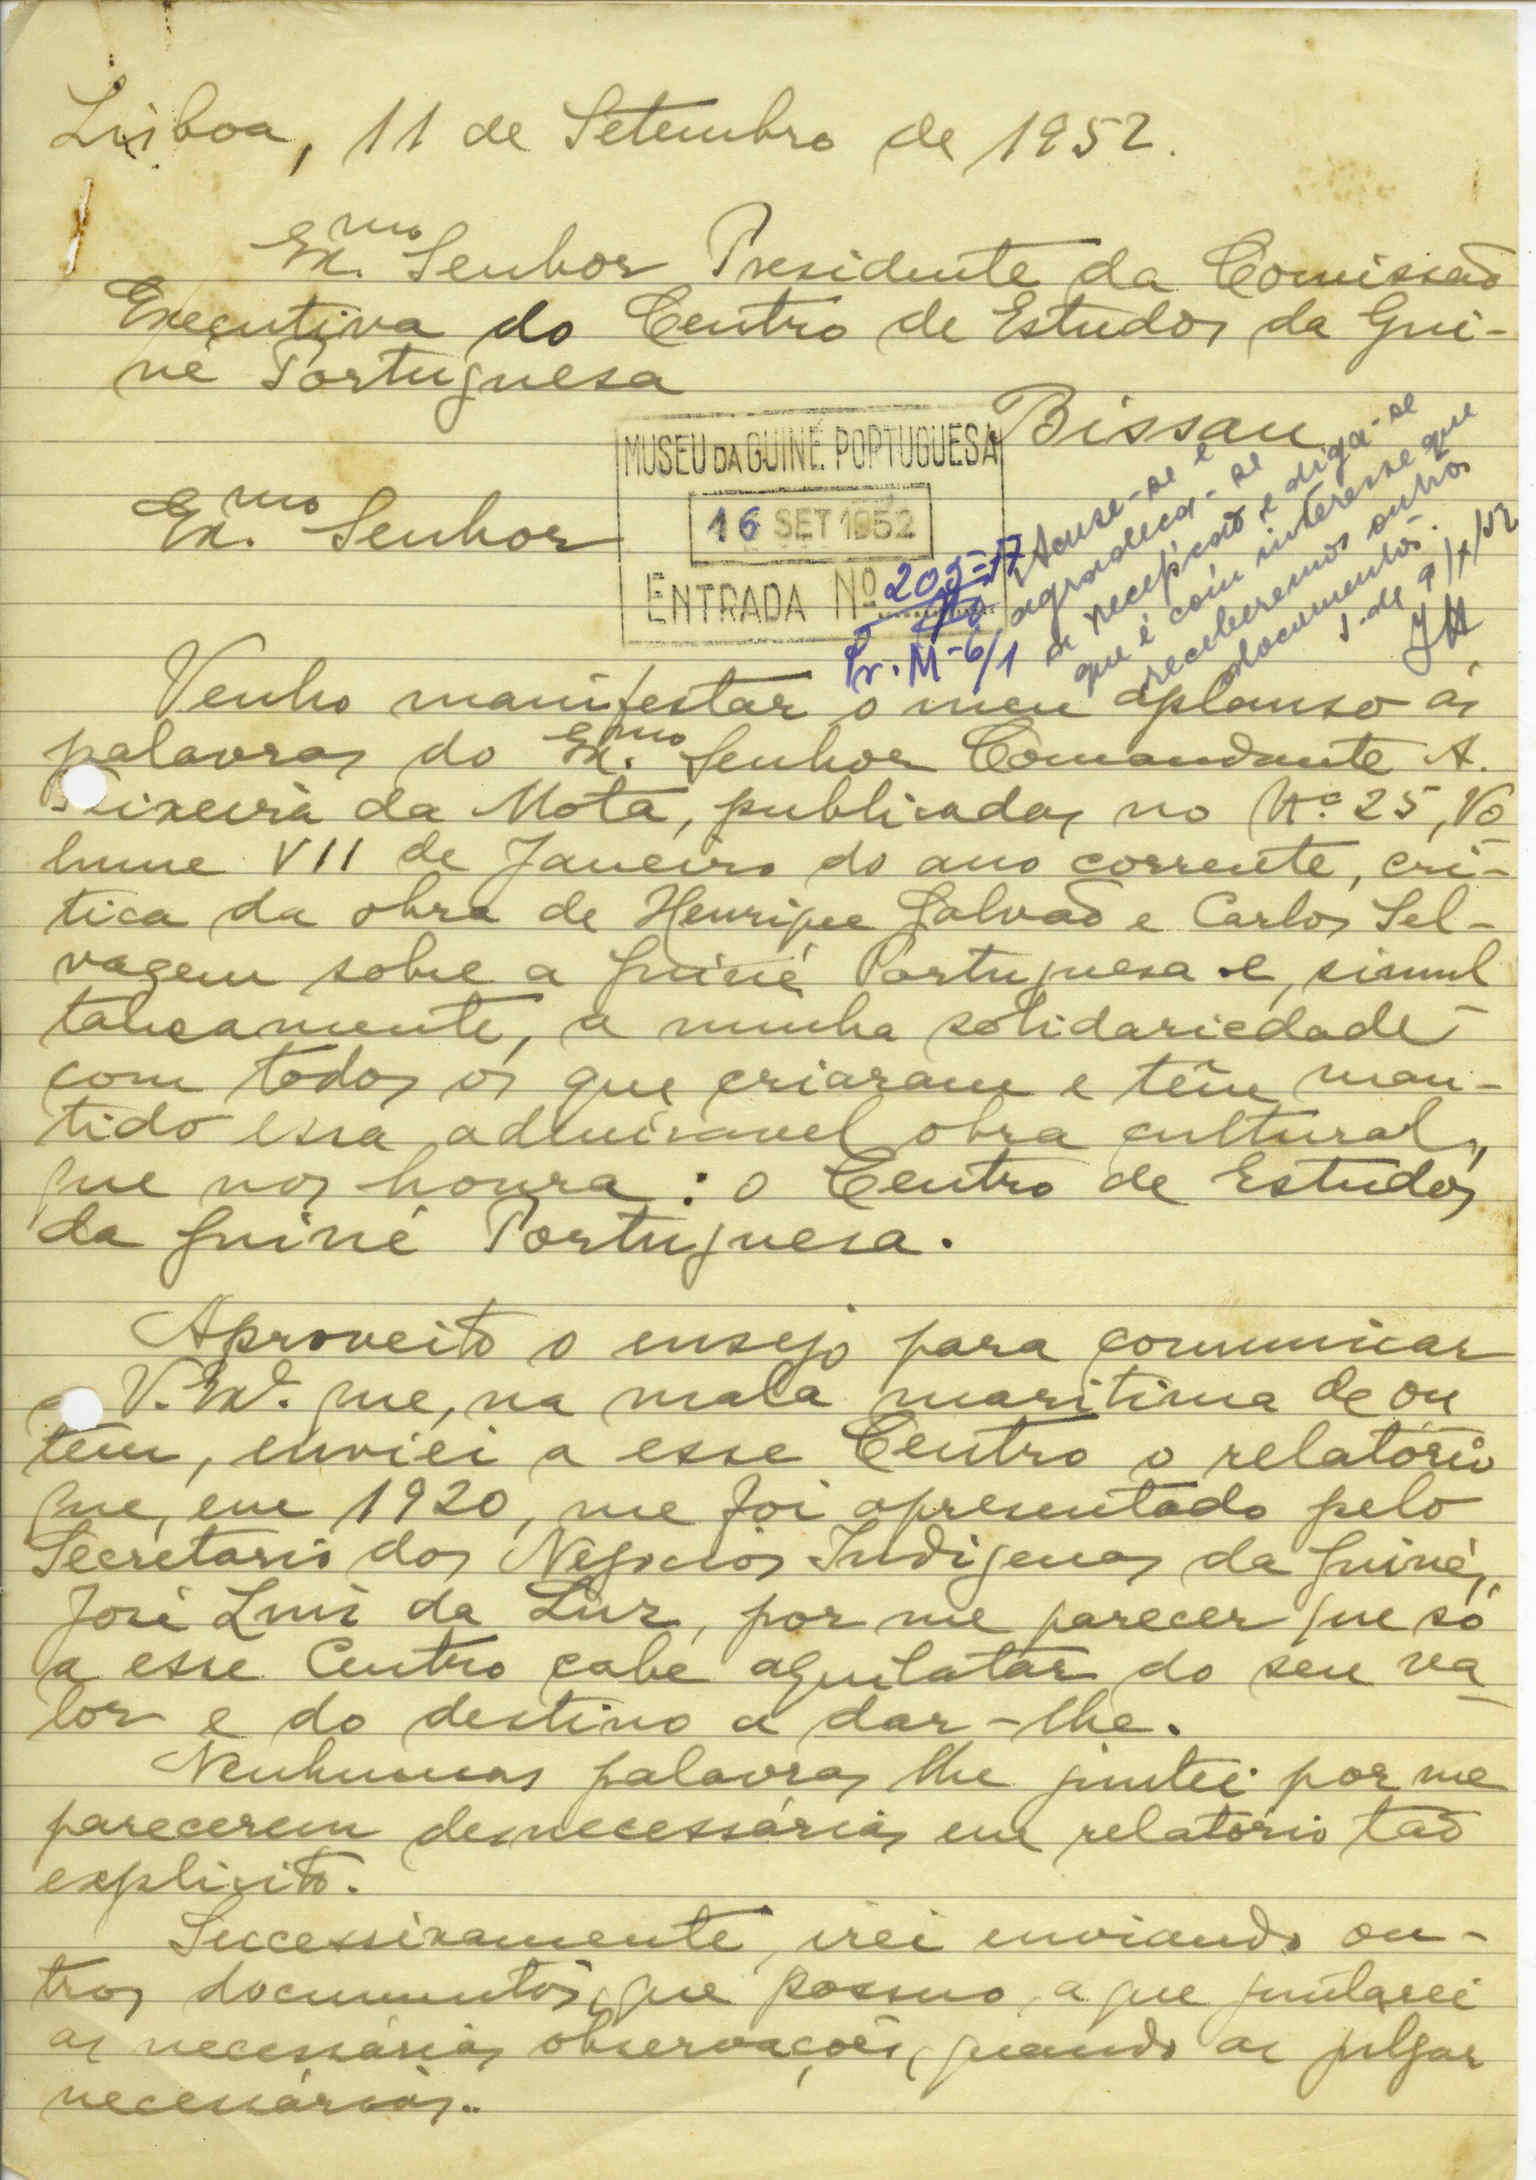 Lisboa, 11 de Setembro de 1952.
Ex.mo Senhor Presidente da Comissão
Executiva do Centro de Estudos da Gui-
né Portuguesa
Bissau
MUSEU DA GUINÉ PORTUGUESA
16 SET 1952
ENTRADA Nº 205-17
Pr. M-6/1
Acuse-se e
agradeça-se
a recepção e diga-se
que é com interesse que
receberemos outros
documentos.
9/X/52
Ex.mo Senhor
Venho manifestar o meu aplauso ás
palavras do Ex.mo Senhor Comandante A.
Teixeira da Mota, publicadas no Nº 25, Vo
lume VII de Janeiro do ano corrente, cri-
tica da obra de Henrique Galvão e Carlos Sel-
vagem sobre a Guiné Portuguesa e, simul
taneamente, a minha solidariedade
com todos os que criaram e têm man-
tido essa admiravel obra cultural,
que nos honra: o Centro de Estudos
da Guiné Portuguesa.
Aproveito o ensejo para comunicar
a V. Ex.ª que, na mala maritima de on
tem, enviei a esse Centro o relatório
que, em 1920, me foi apresentado pelo
Secretario dos Negocios Indigenas da Guiné,
José Luis da Luz, por me parecer que só
a esse Centro cabe aquilatar do seu va
lor e do destino a dar-lhe.
Nenhumas palavras lhe juntei por me
parecerem desnecessárias em relatório tão
explicito.
Sucessivamente, irei enviando ou-
tros documentos que possuo, a que juntarei
as necessárias observações, quando as julgar
necessárias.